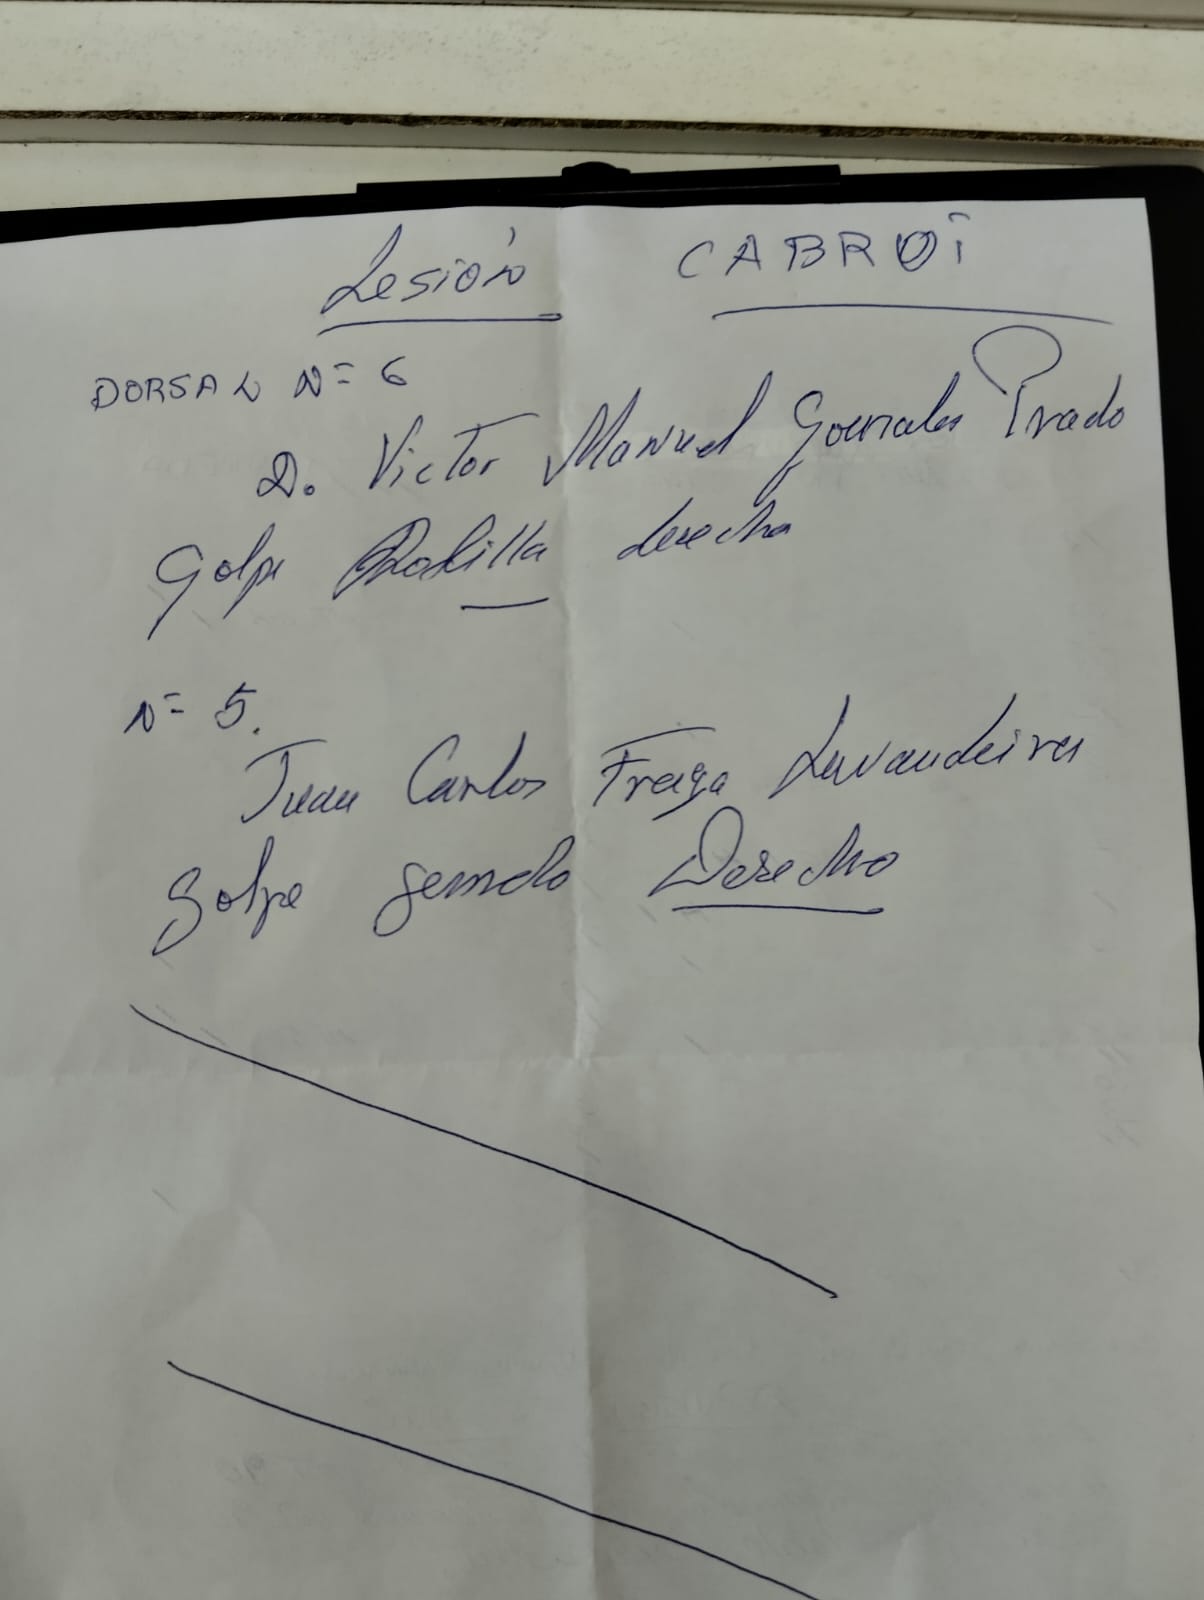 Lesión CABROI
DORSAL Nº 6
D. Victor Manuel Gonzales Prado
Golpe Rodilla derecha
Nº 5.
Juan Carlos Fraga Lavandeira
Golpe gemelo Derecho